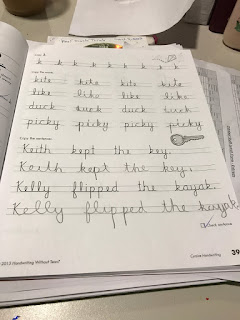 k k k k k k k k k
Copy the words.
kite kite kite kite
like like like like
duck duck duck duck
picky picky picky picky
Copy the sentences.
Keith kept the key.
Keith kept the key.
Kelly flipped the kayak.
Kelly flipped the kayak.
Check sentence
Handwriting Without Tears®
Cursive Handwriting
39